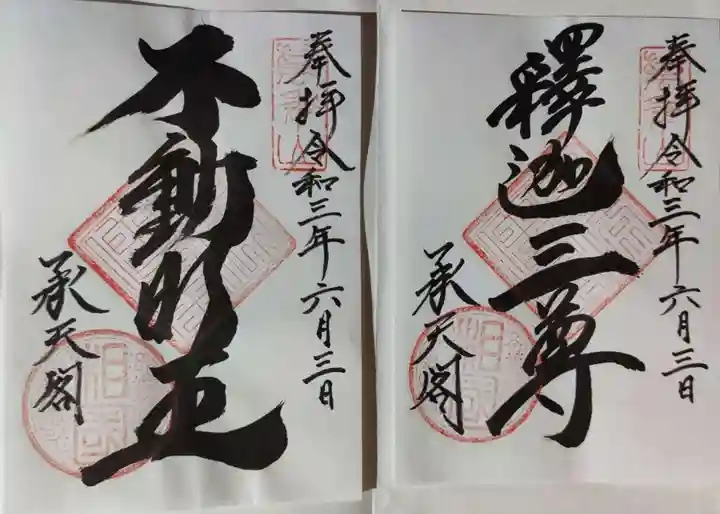 奉拝令和三年六月三日
不動明王
承天閣
奉拝令和三年六月三日
釋迦三尊
承天閣